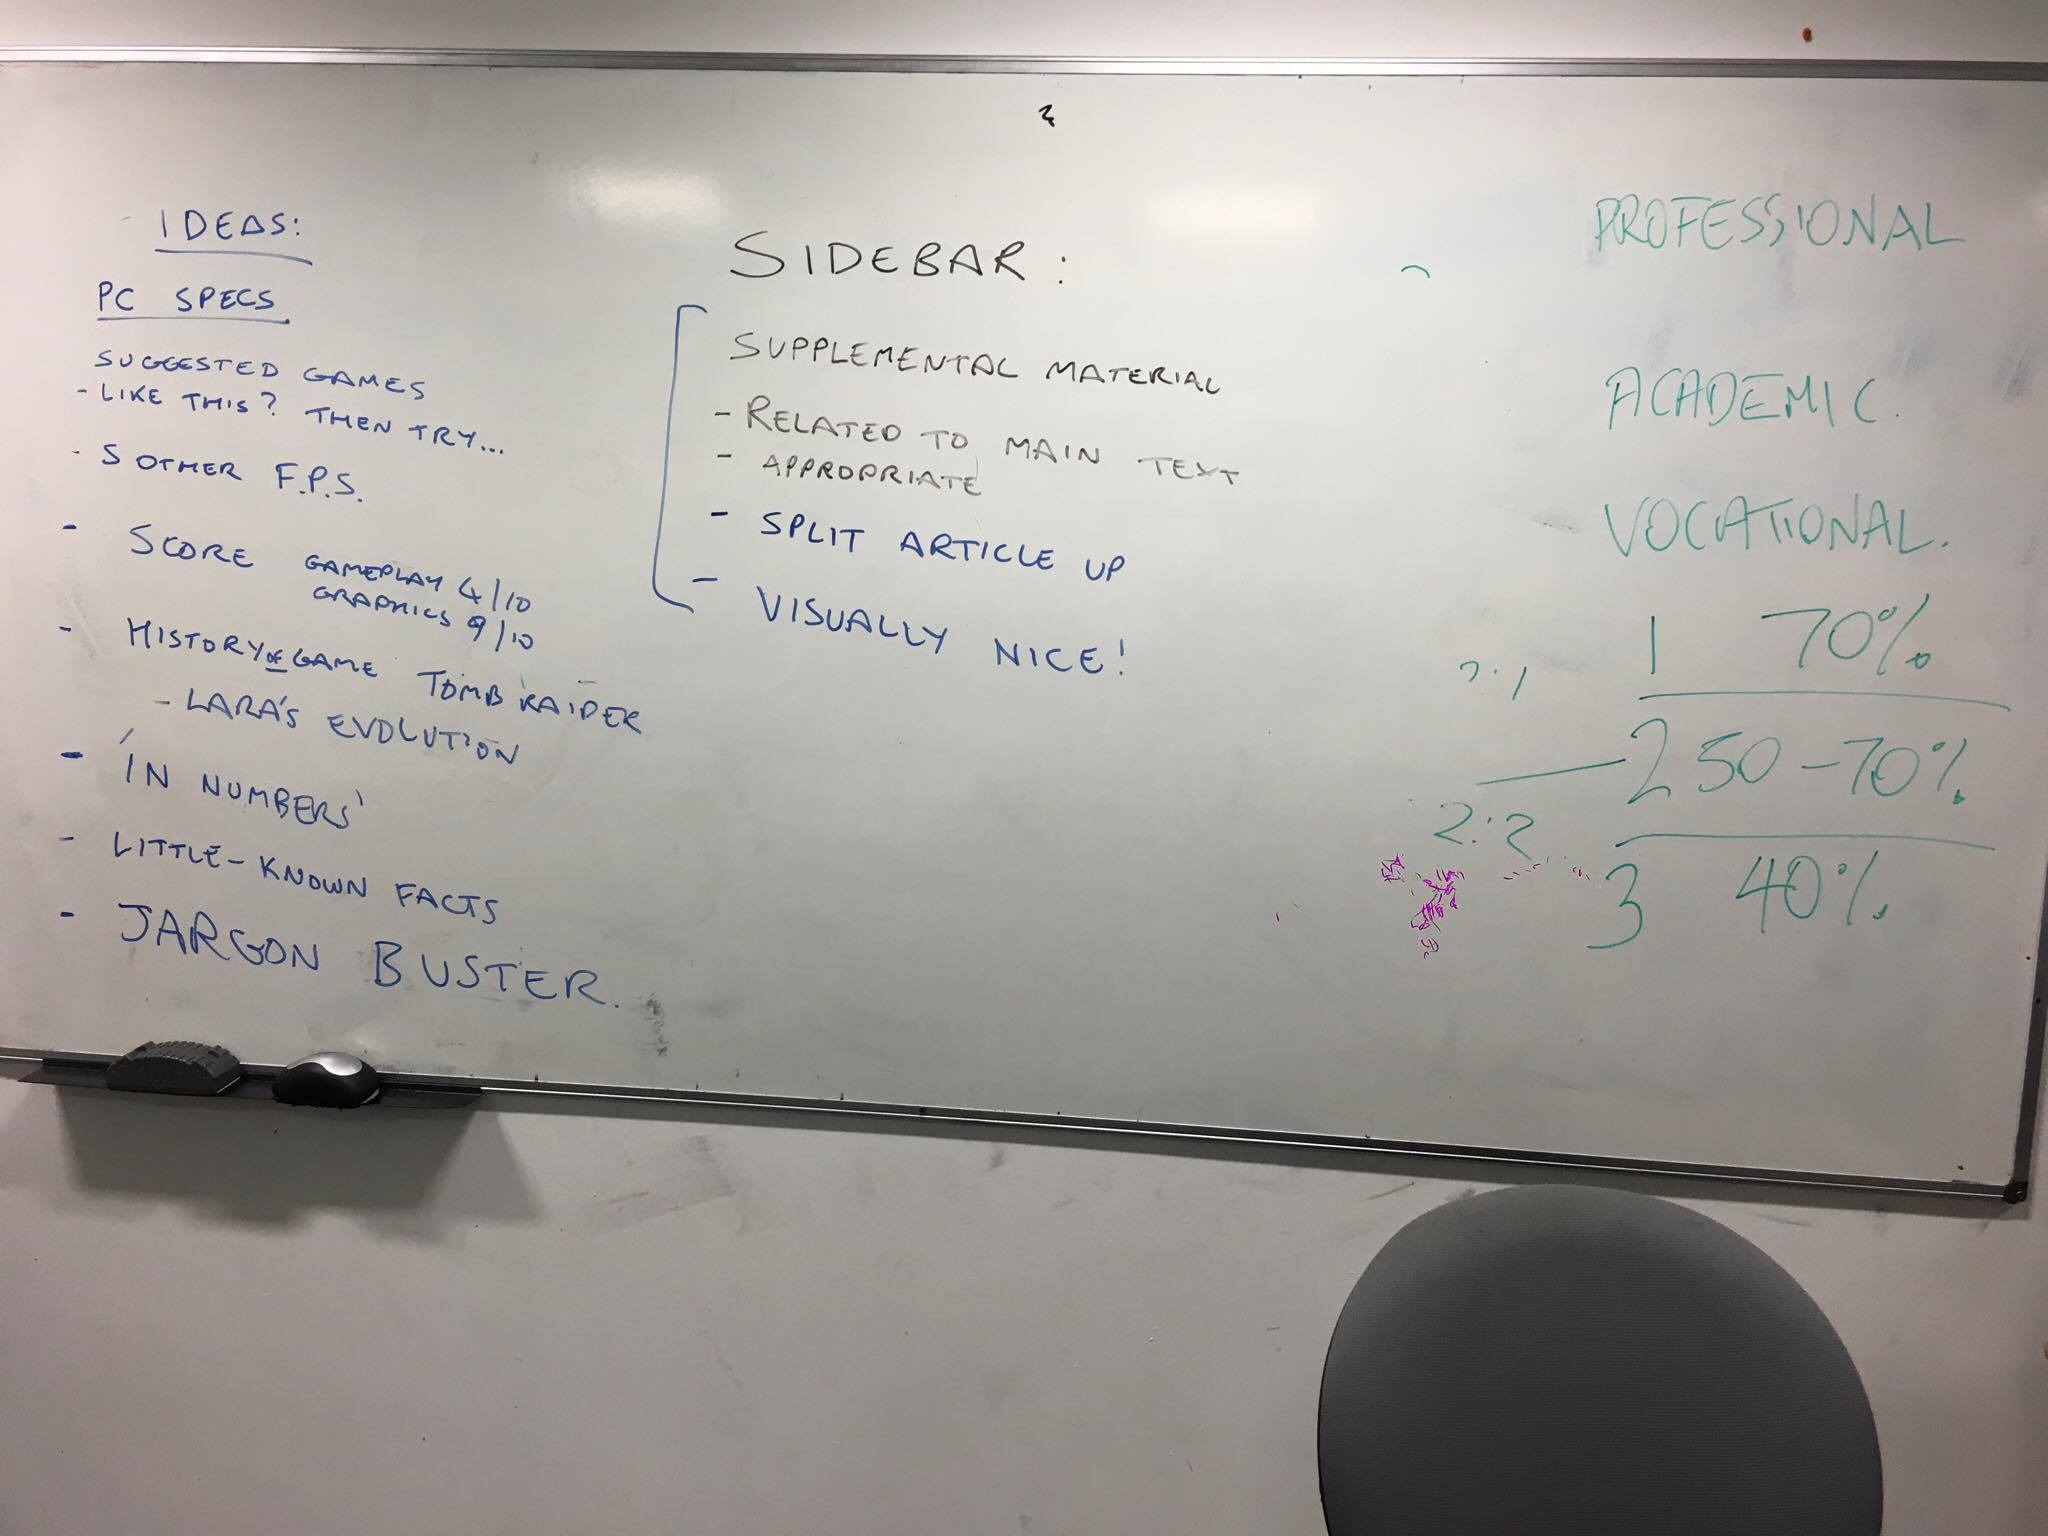 IDEAS:
PC SPECS
SUGGESTED GAMES
- LIKE THIS? THEN TRY...
- 5 OTHER F.P.S.
- SCORE GAMEPLAY 4/10
GRAPHICS 9/10
- HISTORY OF GAME TOMB RAIDER
- LARA'S EVOLUTION
- 'IN NUMBERS'
- LITTLE-KNOWN FACTS
- JARGON BUSTER.
SIDEBAR:
SUPPLEMENTAL MATERIAL
- RELATED TO MAIN TEXT
- APPROPRIATE
- SPLIT ARTICLE UP
- VISUALLY NICE!
PROFESSIONAL
ACADEMIC.
VOCATIONAL.
1 70%
2:1
2 50-70%
2:2
3 40%